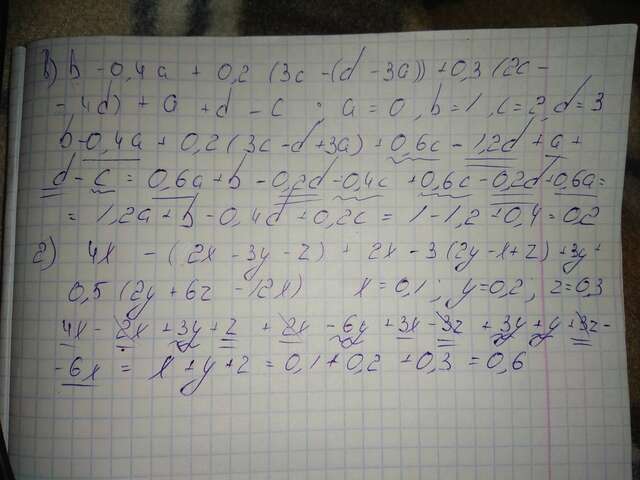 в) b - 0,4a + 0,2 (3c - (d - 3a)) + 0,3 (2c -
- 4d) + a + d - c ; a = 0, b = 1, c = 2, d = 3
b - 0,4a + 0,2 (3c - d + 3a) + 0,6c - 1,2d + a +
d - c = 0,6a + b - 0,2d - 0,4c + 0,6c - 0,2d + 0,6a =
= 1,2a + b - 0,4d + 0,2c = 1 - 1,2 + 0,4 = 0,2
г) 4x - (2x - 3y - z) + 2x - 3 (2y - x + z) + 3y +
0,5 (2y + 6z - 12x) x = 0,1 ; y = 0,2, z = 0,3
4x - 2x + 3y + z + 2x - 6y + 3x - 3z + 3y + y + 3z -
- 6x = x + y + z = 0,1 + 0,2 + 0,3 = 0,6